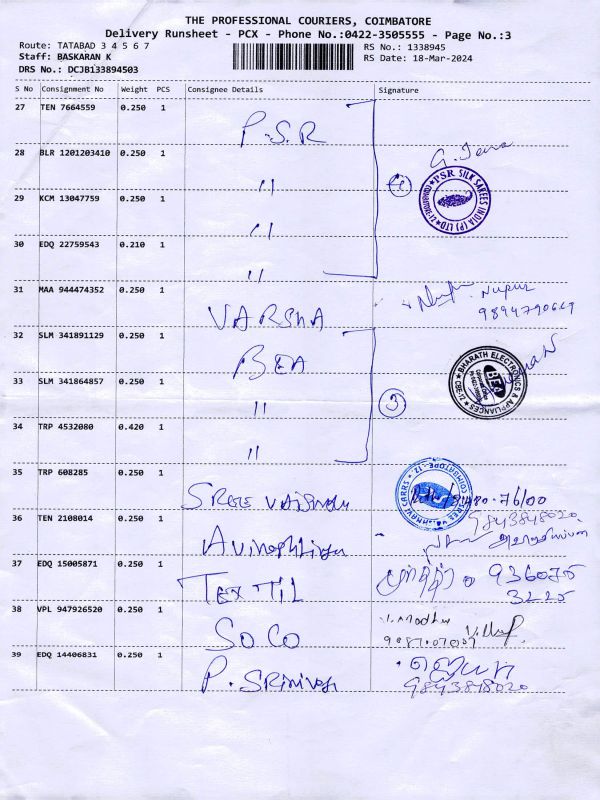 THE PROFESSIONAL COURIERS, COIMBATORE
Delivery Runsheet - PCX - Phone No.:0422-3505555 - Page No.:3
Route: TATABAD 3 4 5 6 7
RS No.: 1338945
Staff: BASKARAN K
RS Date: 18-Mar-2024
DRS No.: DCJB133894503
S No Consignment No Weight PCS Consignee Details Signature
27 TEN 7664559 0.250 1 P.S.R
28 BLR 1201203410 0.250 1 "
4
PSR SILK SAREES INDIA (P) LTD
29 KCM 13047759 0.250 1 "
30 EDQ 22759543 0.210 1 "
31 MAA 944474352 0.250 1 VARSHA Nupur
32 SLM 341891129 0.250 1 BEA
BHARATH ELECTRONICS & APPLIANCES
BEA
33 SLM 341864857 0.250 1 "
3
34 TRP 4532080 0.420 1 "
35 TRP 608285 0.250 1 SREE
36 TEN 2108014 0.250 1
9843848020
37 EDQ 15005871 0.250 1 TEX TIL 936075
3225
38 VPL 947926520 0.250 1 SOCO
39 EDQ 14406831 0.250 1 P.
9843848020